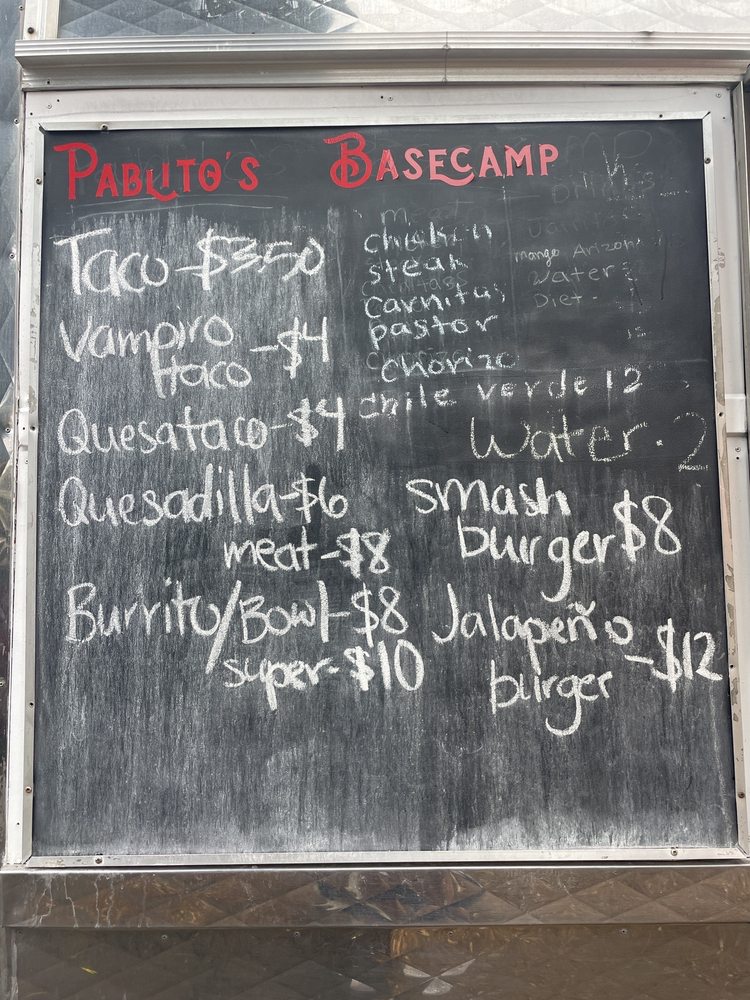 PABLITO'S BASECAMP
Taco-$3.50
Vampiro
taco -$4
Quesataco-$4
Quesadilla-$6
meat-$8
Burrito/Bowl-$8
super-$10
chicken
steak
carnitas
pastor
chorizo
chile verde 12
mango Arizona
water
Diet -
Water - 2
smash
burger $8
Jalapeño
burger -$12